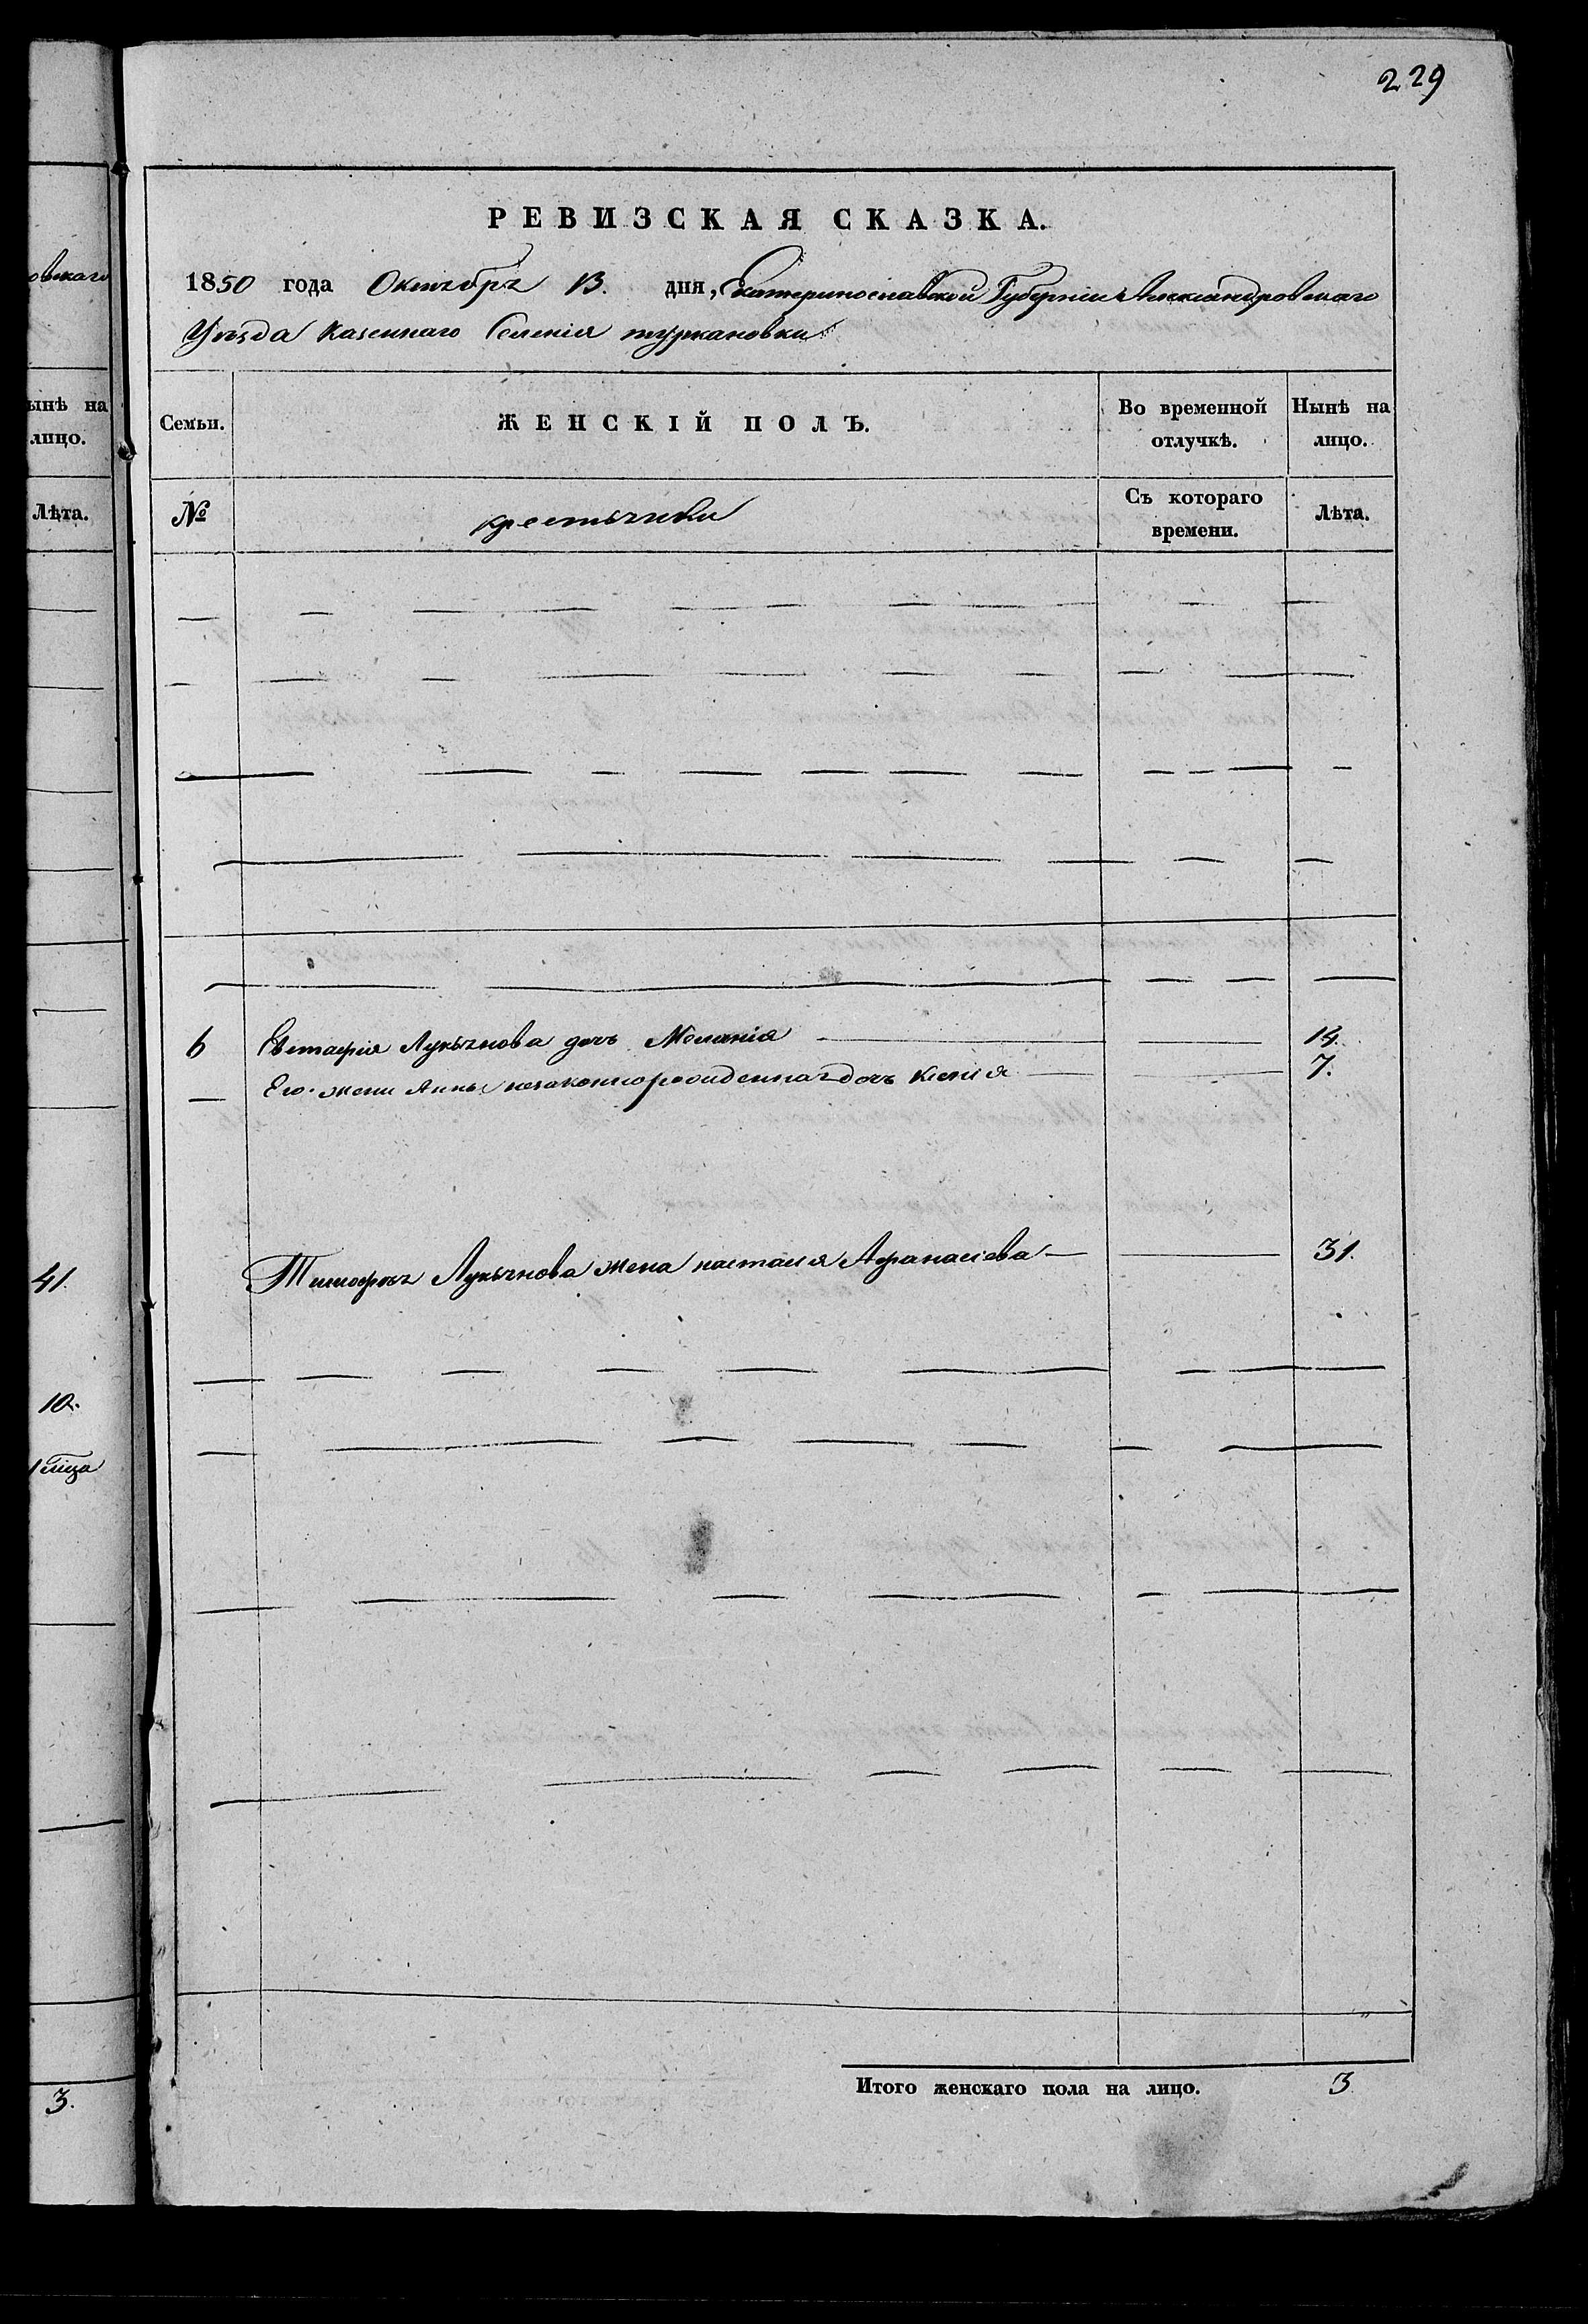 229
РЕВИЗСКАЯ СКАЗКА.
1850 года Октября 13. дня, Екатеринославской Губерніи Александровскаго
Уѣзда Казеннаго Селенія туркановки
Семьи.
ЖЕНСКІЙ ПОЛЪ.
Во временной отлучкѣ.
Нынѣ на лицо.
№
крестьянки
Съ котораго времени.
Лѣта.
6 Евстафія Лукьянова дочь Меланія 14.
Его жены Анны незаконнорожденная дочь Ксенія 7.
Тимофея Лукьянова жена настасія Афанасіева 31.
Итого женскаго пола на лицо. 3
овскаго
ынѣ на
лицо.
Лѣта.
41.
10.
3.